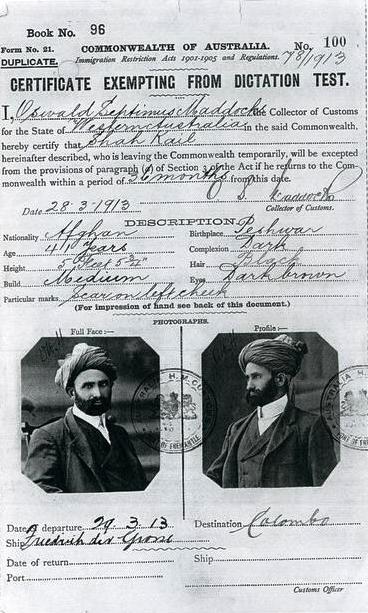 Book No. 96
Form No. 21. COMMONWEALTH OF AUSTRALIA. No. 100
DUPLICATE. Immigration Restriction Acts 1901-1905 and Regulations. 78/1913
CERTIFICATE EXEMPTING FROM DICTATION TEST.
I, Oswald Septimus Maddocks the Collector of Customs
for the State of Western Australia in the said Commonwealth,
hereby certify that Shah Kail
hereinafter described, who is leaving the Commonwealth temporarily, will be excepted
from the provisions of paragraph (a) of Section 3 of the Act if he returns to the Com-
monwealth within a period of 36 months from this date.
O. S. Maddocks
Date 28-3-1913 Collector of Customs.
DESCRIPTION.
Nationality Afghan Birthplace Peshwar
Age 41 Years Complexion Dark
Height 5 feet 5¾" Hair Black
Build Medium Eyes Dark brown
Particular marks Scar on left cheek
(For impression of hand see back of this document.)
PHOTOGRAPHS.
Full Face:— Profile:—
AUSTRALIA H.M. CUSTOMS PORT OF FREMANTLE
AUSTRALIA H. PORT OF FREMANTLE
Date of departure 29.3.13 Destination Colombo
Ship Friedrich der Grosse
Date of return Ship
Port
Customs Officer